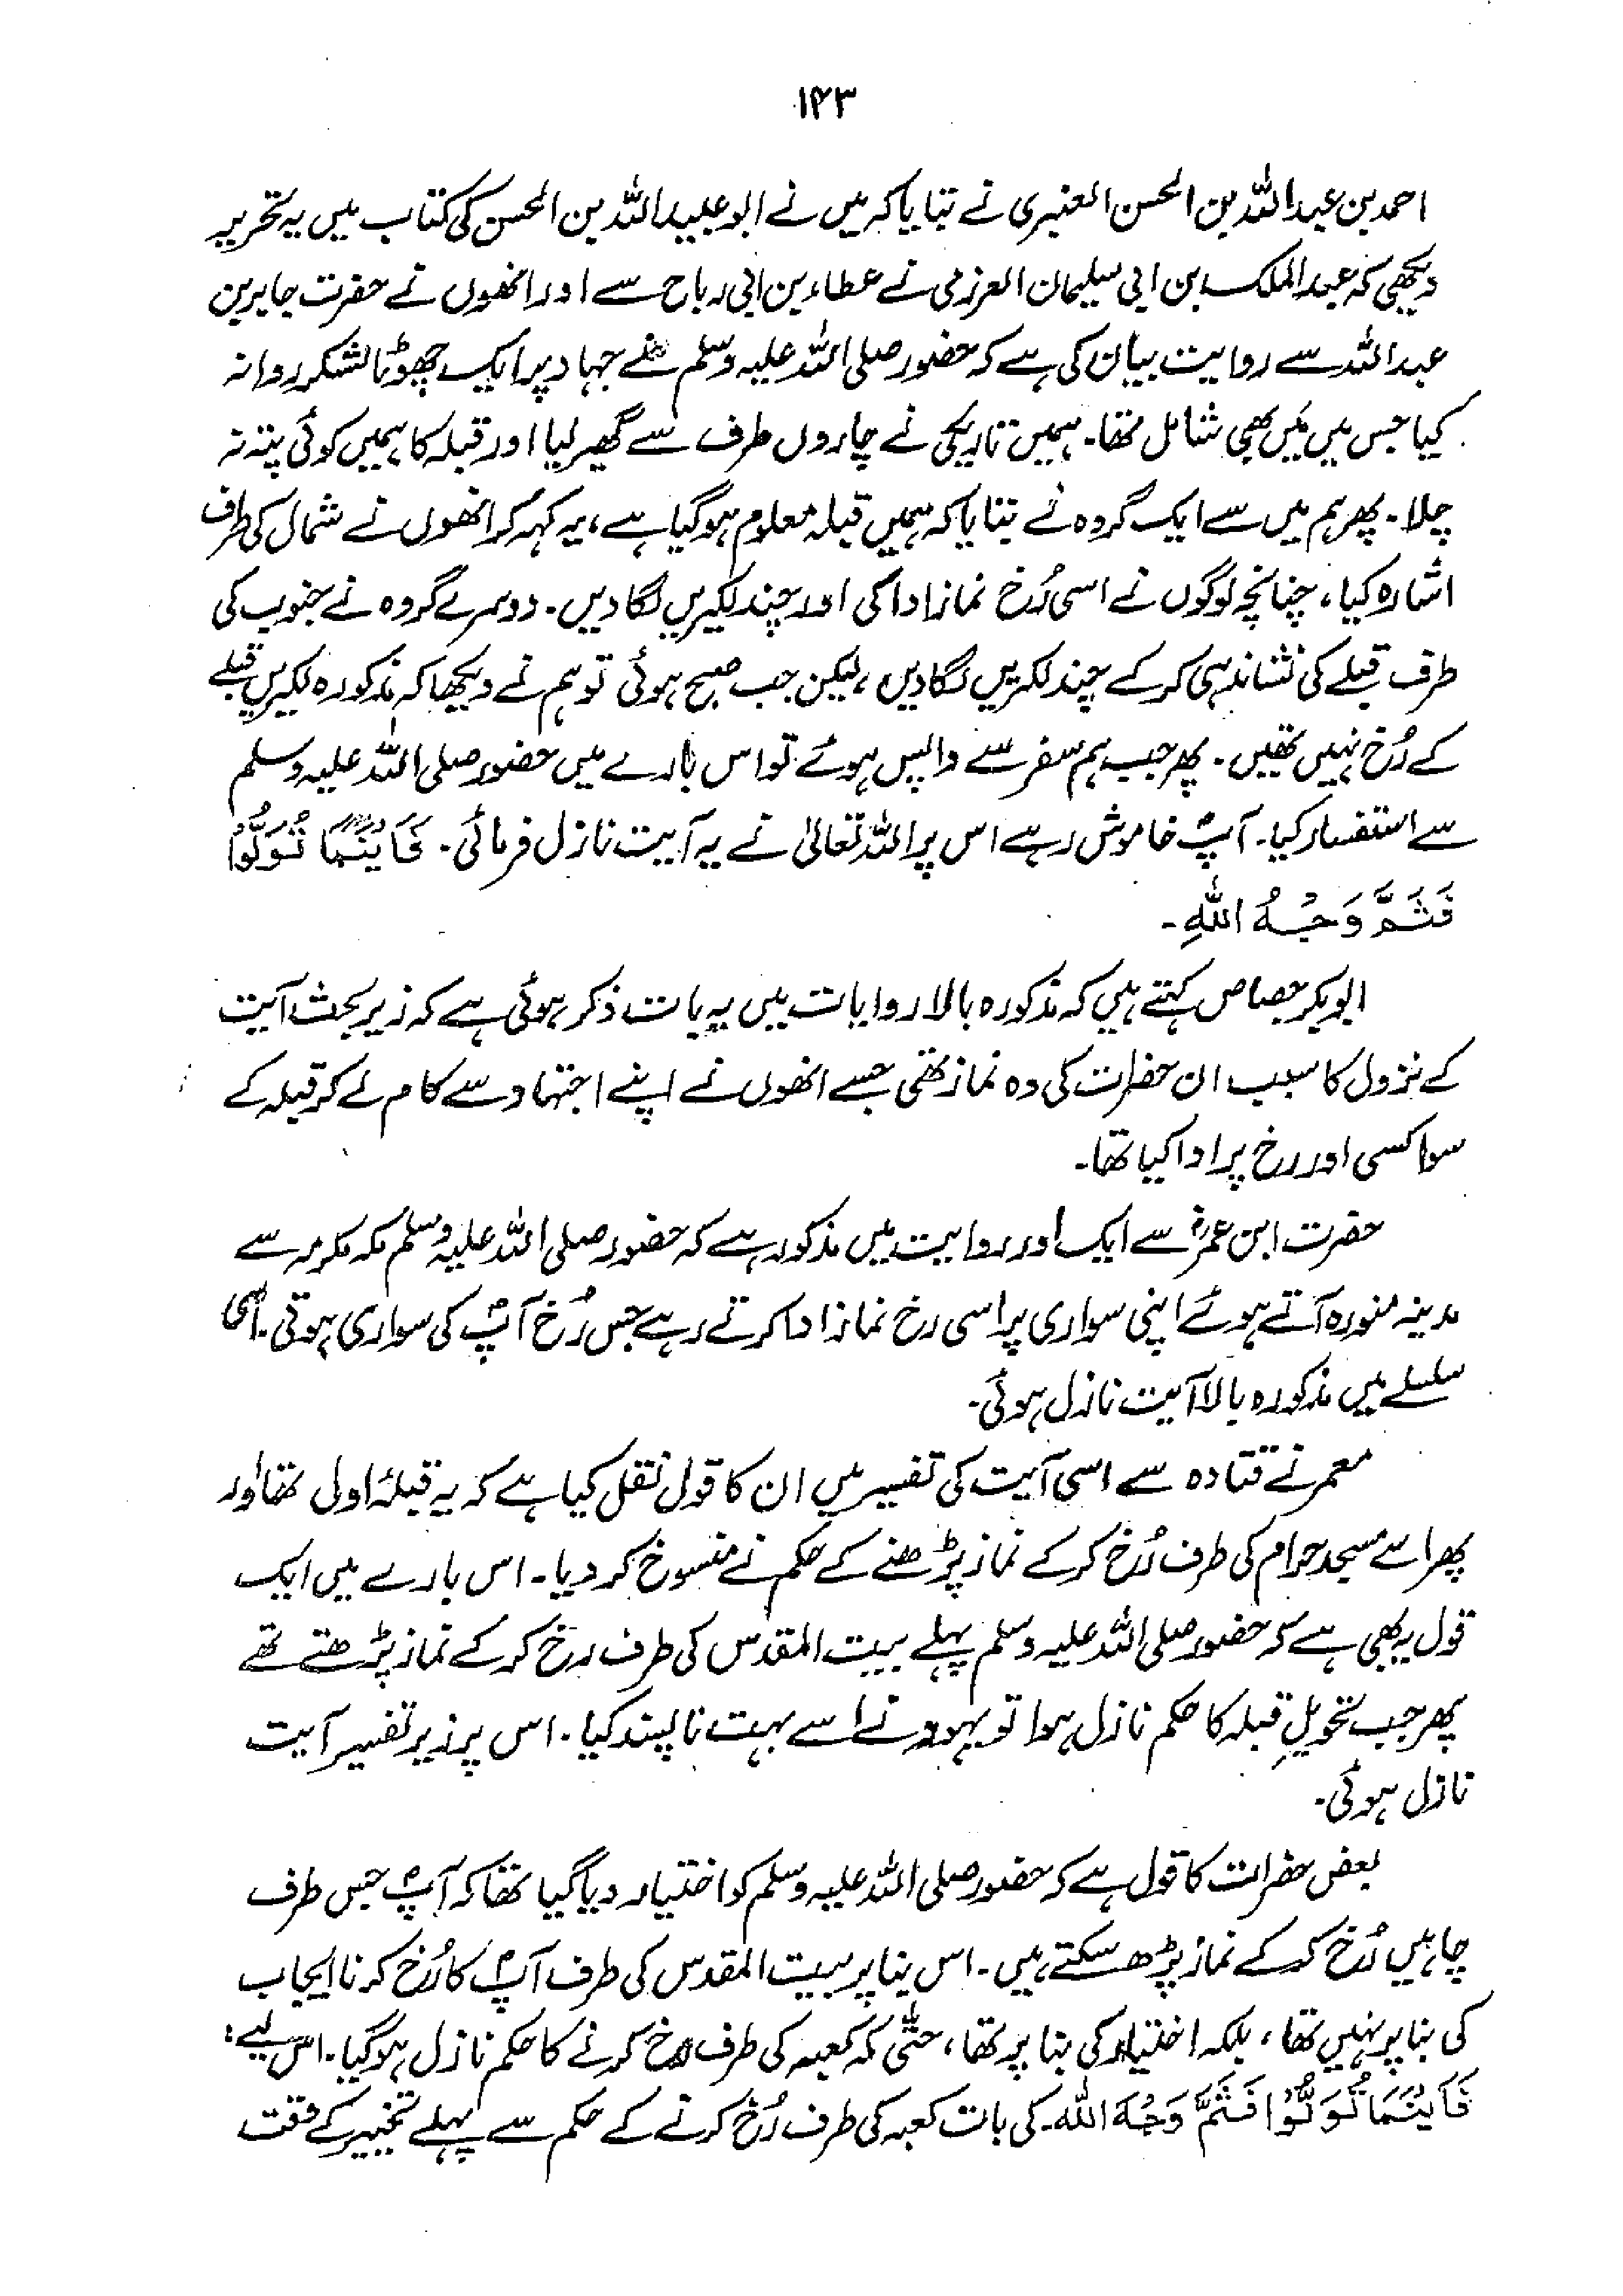 ۱۴۳
احمد بن عبداللہ بن الحسن العنبری نے بتایا کہ میں نے ابوعبیداللہ بن الحسن کی کتاب میں یہ تحریر
دیکھی کہ عبدالملک بن ابی سلیمان العرزمی نے عطاء بن ابی رباح سے اور انھوں نے حضرت جابر بن
عبداللہ سے روایت بیان کی ہے کہ حضور صلی اللہ علیہ وسلم نے جہاد پر ایک چھوٹا لشکر روانہ
کیا جس میں مَیں بھی شامل تھا۔ ہمیں تاریکی نے چاروں طرف سے گھیر لیا اور قبلہ کا ہمیں کوئی پتہ نہ
چلا۔ پھر ہم میں سے ایک گروہ نے بتایا کہ ہمیں قبلہ معلوم ہوگیا ہے، یہ کہہ کر انھوں نے شمال کی طرف
اشارہ کیا، چنانچہ لوگوں نے اسی رُخ نماز ادا کی اور چند لکیریں لگا دیں۔ دوسرے گروہ نے جنوب کی
طرف قبلے کی نشاندہی کرکے چند لکریں لگا دیں، لیکن جب صبح ہوئی تو ہم نے دیکھا کہ مذکورہ لکیریں قبلے
کے رُخ نہیں تھیں۔ پھر جب ہم سفر سے واپس ہوئے تو اس بارے میں حضور صلی اللہ علیہ وسلم
سے استفسار کیا۔ آپؐ خاموش رہے اس پر اللہ تعالیٰ نے یہ آیت نازل فرمائی۔ فَاَیْنَمَا تُوَلُّوْا
فَثَمَّ وَجْہُ اللہِ۔
ابوبکر جصاص کہتے ہیں کہ مذکورہ بالا روایات میں یہ بات ذکر ہوئی ہے کہ زیر بحث آیت
کے نزول کا سبب ان حضرات کی وہ نماز تھی جسے انھوں نے اپنے اجتہاد سے کام لے کر قبلہ کے
سوا کسی اور رخ پر ادا کیا تھا۔
حضرت ابن عمرؓ سے ایک اور روایت میں مذکور ہے کہ حضور صلی اللہ علیہ وسلم مکہ مکرمہ سے
مدینہ منورہ آتے ہوئے اپنی سواری پر اسی رخ نماز ادا کرتے رہے جس رُخ آپؐ کی سواری ہوتی۔ اسی
سلسلے میں مذکورہ بالا آیت نازل ہوئی۔
معمر نے قتادہ سے اسی آیت کی تفسیر میں ان کا قول نقل کیا ہے کہ یہ قبلۂ اولیٰ تھا اور
پھر اسے مسجد حرام کی طرف رُخ کرکے نماز پڑھنے کے حکم نے منسوخ کر دیا۔ اس بارے میں ایک
قول یہ بھی ہے کہ حضور صلی اللہ علیہ وسلم پہلے بیت المقدس کی طرف رخ کرکے نماز پڑھتے تھے
پھر جب تحویلِ قبلہ کا حکم نازل ہوا تو یہود نے اسے بہت ناپسند کیا۔ اس پر زیر تفسیر آیت
نازل ہوئی۔
بعض حضرات کا قول ہے کہ حضور صلی اللہ علیہ وسلم کو اختیار دیا گیا تھا کہ آپؐ جس طرف
چاہیں رُخ کرکے نماز پڑھ سکتے ہیں۔ اس بنا پر بیت المقدس کی طرف آپؐ کا رُخ کرنا ایجاب
کی بنا پر نہیں تھا، بلکہ اختیار کی بنا پر تھا، حتّٰی کہ کعبہ کی طرف رخ کرنے کا حکم نازل ہوگیا۔ اس لیے:
فَاَیْنَمَا تُوَلُّوْا فَثَمَّ وَجْہُ اللہ۔ کی بات کعبہ کی طرف رُخ کرنے کے حکم سے پہلے تخییر کے وقت